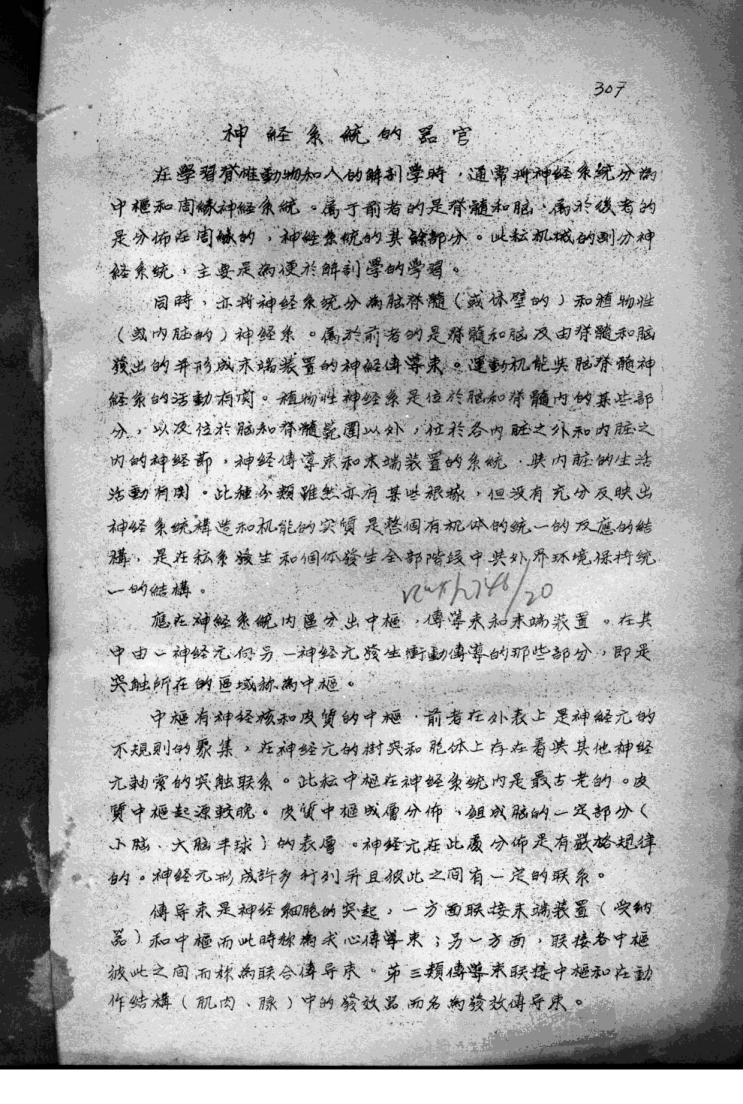 307
神經系統的器官
在學習脊椎動物和人的解剖學時，通常將神經系統分為
中樞和周緣神經系統。属于前者的是脊髓和脑，属於後者的
是分佈在周緣的，神經系統的其餘部分。此种机械的劃分神
經系統，主要是為便於解剖學的學習。
同時，亦將神經系統分為脑脊髓（或体壁的）和植物性
（或内脏的）神經系。属於前者的是脊髓和脑及由脊髓和脑
發出的并形成末端裝置的神經傳導束。運動机能與脑脊髓神
經系的活動有関。植物性神經系是位於脑和脊髓内的某些部
分，以及位於脑和脊髓範圍以外，位於各内脏之外和内脏之
内的神經節，神經傳導束和末端裝置的系統，與内脏的生活
活動有関。此種分類雖然亦有某些根據，但没有充分反映出
神經系統構造和机能的实質是整個有机体的統一的反應的結
構，是在种系發生和個体發生全部階段中與外界环境保持統
一的結構。
20
應在神經系統内區分出中樞，傳導束和末端裝置。在其
中由一神經元向另一神經元發生衝動傳導的那些部分，即是
突触所在的區域称為中樞。
中樞有神經核和皮質的中樞，前者在外表上是神經元的
不規則的聚集，在神經元的樹突和胞体上存在着與其他神經
元軸索的突触联系。此种中樞在神經系統内是最古老的。皮
質中樞起源較晚。皮質中樞成層分佈，組成脑的一定部分（
小脑、大脑半球）的表層。神經元在此處分佈是有嚴格規律
的。神經元形成許多行列并且彼此之间有一定的联系。
傳导束是神經細胞的突起，一方面联接末端裝置（受納
器）和中樞而此時称為求心傳導束；另一方面，联接各中樞
彼此之间而称為联合傳导束。第三類傳導束联接中樞和在動
作結構（肌肉、腺）中的發效器而名為發效傳导束。